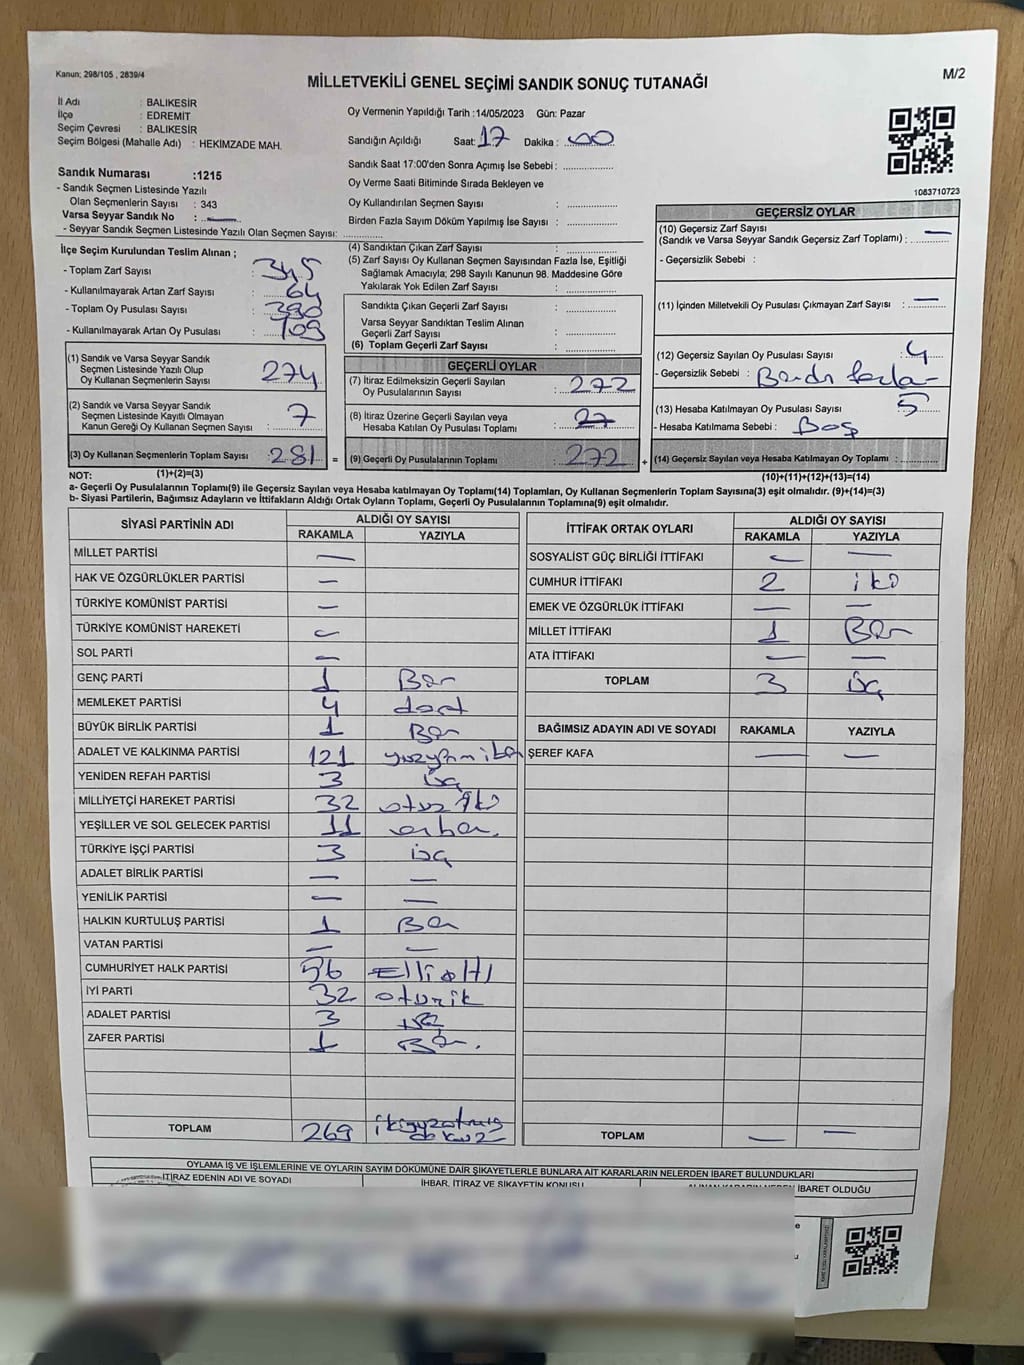 Kanun; 298/105 , 2839/4
MİLLETVEKİLİ GENEL SEÇİMİ SANDIK SONUÇ TUTANAĞI
M/2
İl Adı : BALIKESİR
İlçe : EDREMİT
Seçim Çevresi : BALIKESİR
Seçim Bölgesi (Mahalle Adı) : HEKİMZADE MAH.
Oy Vermenin Yapıldığı Tarih :14/05/2023 Gün: Pazar
Sandığın Açıldığı Saat: 17 Dakika : 00
Sandık Saat 17:00'den Sonra Açımış İse Sebebi :
Oy Verme Saati Bitiminde Sırada Bekleyen ve
Oy Kullandırılan Seçmen Sayısı :
Birden Fazla Sayım Döküm Yapılmış İse Sayısı :
1083710723
Sandık Numarası :1215
- Sandık Seçmen Listesinde Yazılı
Olan Seçmenlerin Sayısı : 343
Varsa Seyyar Sandık No : —
- Seyyar Sandık Seçmen Listesinde Yazılı Olan Seçmen Sayısı:
İlçe Seçim Kurulundan Teslim Alınan ;
- Toplam Zarf Sayısı : 345
- Kullanılmayarak Artan Zarf Sayısı : 64
- Toplam Oy Pusulası Sayısı : 390
- Kullanılmayarak Artan Oy Pusulası : 109
(1) Sandık ve Varsa Seyyar Sandık
Seçmen Listesinde Yazılı Olup
Oy Kullanan Seçmenlerin Sayısı : 274
(2) Sandık ve Varsa Seyyar Sandık
Seçmen Listesinde Kayıtlı Olmayan
Kanun Gereği Oy Kullanan Seçmen Sayısı : 7
(3) Oy Kullanan Seçmenlerin Toplam Sayısı : 281 =
(4) Sandıktan Çıkan Zarf Sayısı :
(5) Zarf Sayısı Oy Kullanan Seçmen Sayısından Fazla İse, Eşitliği
Sağlamak Amacıyla; 298 Sayılı Kanunun 98. Maddesine Göre
Yakılarak Yok Edilen Zarf Sayısı :
Sandıkta Çıkan Geçerli Zarf Sayısı :
Varsa Seyyar Sandıktan Teslim Alınan
Geçerli Zarf Sayısı :
(6) Toplam Geçerli Zarf Sayısı :
GEÇERLİ OYLAR
(7) İtiraz Edilmeksizin Geçerli Sayılan
Oy Pusulalarının Sayısı : 272
(8) İtiraz Üzerine Geçerli Sayılan veya
Hesaba Katılan Oy Pusulası Toplamı : 27
(9) Geçerli Oy Pusulalarının Toplamı : 272 +
GEÇERSİZ OYLAR
(10) Geçersiz Zarf Sayısı
(Sandık ve Varsa Seyyar Sandık Geçersiz Zarf Toplamı) : —
- Geçersizlik Sebebi :
(11) İçinden Milletvekili Oy Pusulası Çıkmayan Zarf Sayısı : —
(12) Geçersiz Sayılan Oy Pusulası Sayısı : 4
- Geçersizlik Sebebi : fazla
(13) Hesaba Katılmayan Oy Pusulası Sayısı : 5
- Hesaba Katılmama Sebebi : Boş
(14) Geçersiz Sayılan veya Hesaba Katılmayan Oy Toplamı :
NOT: (1)+(2)=(3) (10)+(11)+(12)+(13)=(14)
a- Geçerli Oy Pusulalarının Toplamı(9) ile Geçersiz Sayılan veya Hesaba katılmayan Oy Toplamı(14) Toplamları, Oy Kullanan Seçmenlerin Toplam Sayısına(3) eşit olmalıdır. (9)+(14)=(3)
b- Siyasi Partilerin, Bağımsız Adayların ve İttifakların Aldığı Ortak Oyların Toplamı, Geçerli Oy Pusulalarının Toplamına(9) eşit olmalıdır.
SİYASİ PARTİNİN ADI ALDIĞI OY SAYISI
RAKAMLA YAZIYLA
MİLLET PARTİSİ —
HAK VE ÖZGÜRLÜKLER PARTİSİ —
TÜRKİYE KOMÜNİST PARTİSİ —
TÜRKİYE KOMÜNİST HAREKETİ —
SOL PARTİ —
GENÇ PARTİ 1 Bir
MEMLEKET PARTİSİ 4 dört
BÜYÜK BİRLİK PARTİSİ 1 Bir
ADALET VE KALKINMA PARTİSİ 121 yüzyirmibir
YENİDEN REFAH PARTİSİ 3 üç
MİLLİYETÇİ HAREKET PARTİSİ 32 otuz iki
YEŞİLLER VE SOL GELECEK PARTİSİ 11 onbir.
TÜRKİYE İŞÇİ PARTİSİ 3 üç
ADALET BİRLİK PARTİSİ — —
YENİLİK PARTİSİ — —
HALKIN KURTULUŞ PARTİSİ 1 Bir
VATAN PARTİSİ — —
CUMHURİYET HALK PARTİSİ 56 Elli altı
İYİ PARTİ 32 otuzik
ADALET PARTİSİ 3 üç
ZAFER PARTİSİ 1 Bir.
TOPLAM 269 ikiyüzatmış dokuz
İTTİFAK ORTAK OYLARI ALDIĞI OY SAYISI
RAKAMLA YAZIYLA
SOSYALİST GÜÇ BİRLİĞİ İTTİFAKI — —
CUMHUR İTTİFAKI 2 iki
EMEK VE ÖZGÜRLÜK İTTİFAKI — —
MİLLET İTTİFAKI 1 Bir
ATA İTTİFAKI — —
TOPLAM 3 üç
BAĞIMSIZ ADAYIN ADI VE SOYADI RAKAMLA YAZIYLA
ŞEREF KAFA — —
TOPLAM — —
OYLAMA İŞ VE İŞLEMLERİNE VE OYLARIN SAYIM DÖKÜMÜNE DAİR ŞİKAYETLERLE BUNLARA AİT KARARLARIN NELERDEN İBARET BULUNDUKLARI
İTİRAZ EDENİN ADI VE SOYADI İHBAR, İTİRAZ VE ŞİKAYETİN KONUSU İBARET OLDUĞU